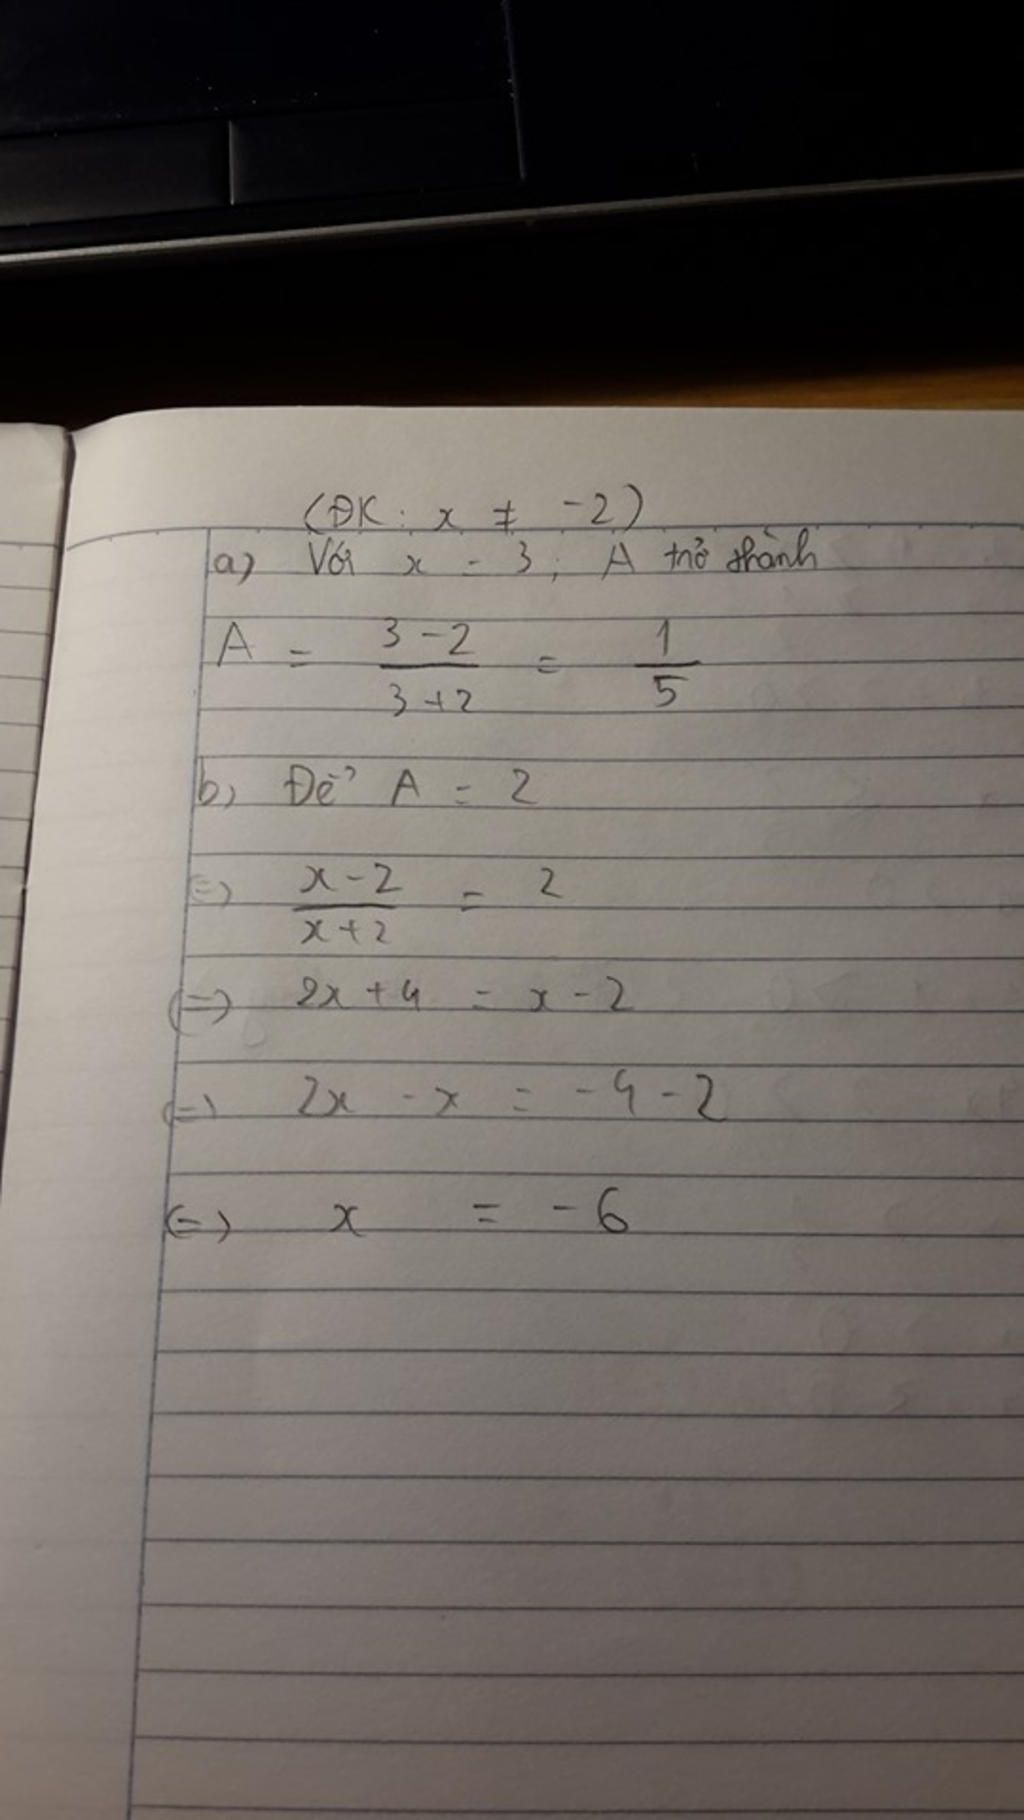 (ĐK: x ≠ -2)
a) Với x = 3; A trở thành
A = \frac{3-2}{3+2} = \frac{1}{5}
b) Để A = 2
=> \frac{x-2}{x+2} = 2
<=> 2x + 4 = x - 2
<=> 2x - x = -4 - 2
<=> x = -6